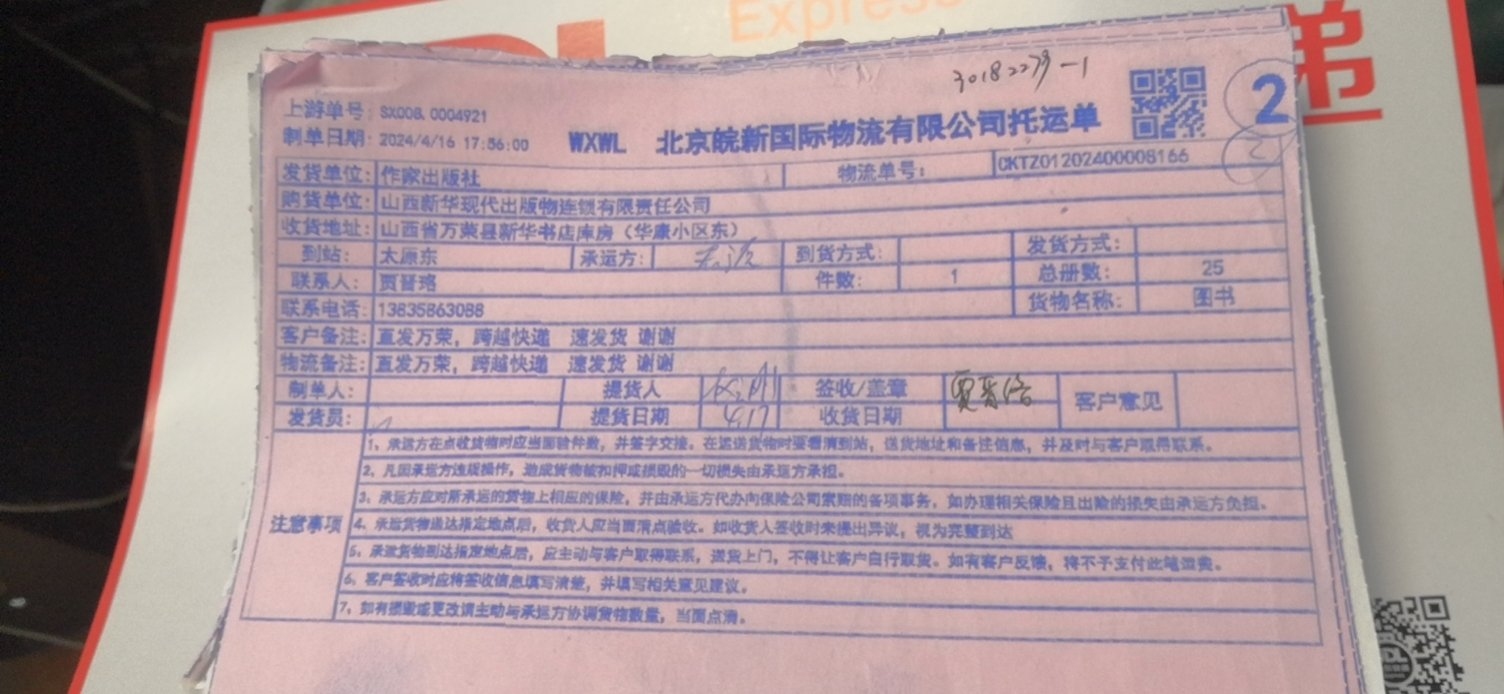 Express
递
30182279-1
上游单号: SX008.0004921
制单日期: 2024/4/16 17:56:00
WXWL 北京皖新国际物流有限公司托运单
2
2
发货单位: 作家出版社 物流单号: CKTZ01202400008166
购货单位: 山西新华现代出版物连锁有限责任公司
收货地址: 山西省万荣县新华书店库房(华康小区东)
到站: 太原东 承运方: 到货方式: 发货方式:
联系人: 贾晋珞 件数: 1 总册数: 25
联系电话: 13835863088 货物名称: 图书
客户备注: 直发万荣,跨越快递 速发货 谢谢
物流备注: 直发万荣,跨越快递 速发货 谢谢
制单人: 提货人 签收/盖章 贾晋珞 客户意见
发货员: 提货日期 4.17 收货日期
注意事项
1、承运方在点收货物时应当面验件数,并签字交接。在运送货物时要看清到站,送货地址和备注信息,并及时与客户取得联系。
2、凡因承运方违规操作,造成货物被扣押或损毁的一切损失由承运方承担。
3、承运方应对所承运的货物上相应的保险,并由承运方代办向保险公司索赔的各项事务,如办理相关保险且出险的损失由承运方负担。
4、承运货物送达指定地点后,收货人应当面清点验收。如收货人签收时未提出异议,视为完整到达
5、承运货物到达指定地点后,应主动与客户取得联系,送货上门,不得让客户自行取货。如有客户反馈,将不予支付此笔运费。
6、客户签收时应将签收信息填写清楚,并填写相关意见建议。
7、如有损毁或更改请主动与承运方协调货物数量,当面点清。